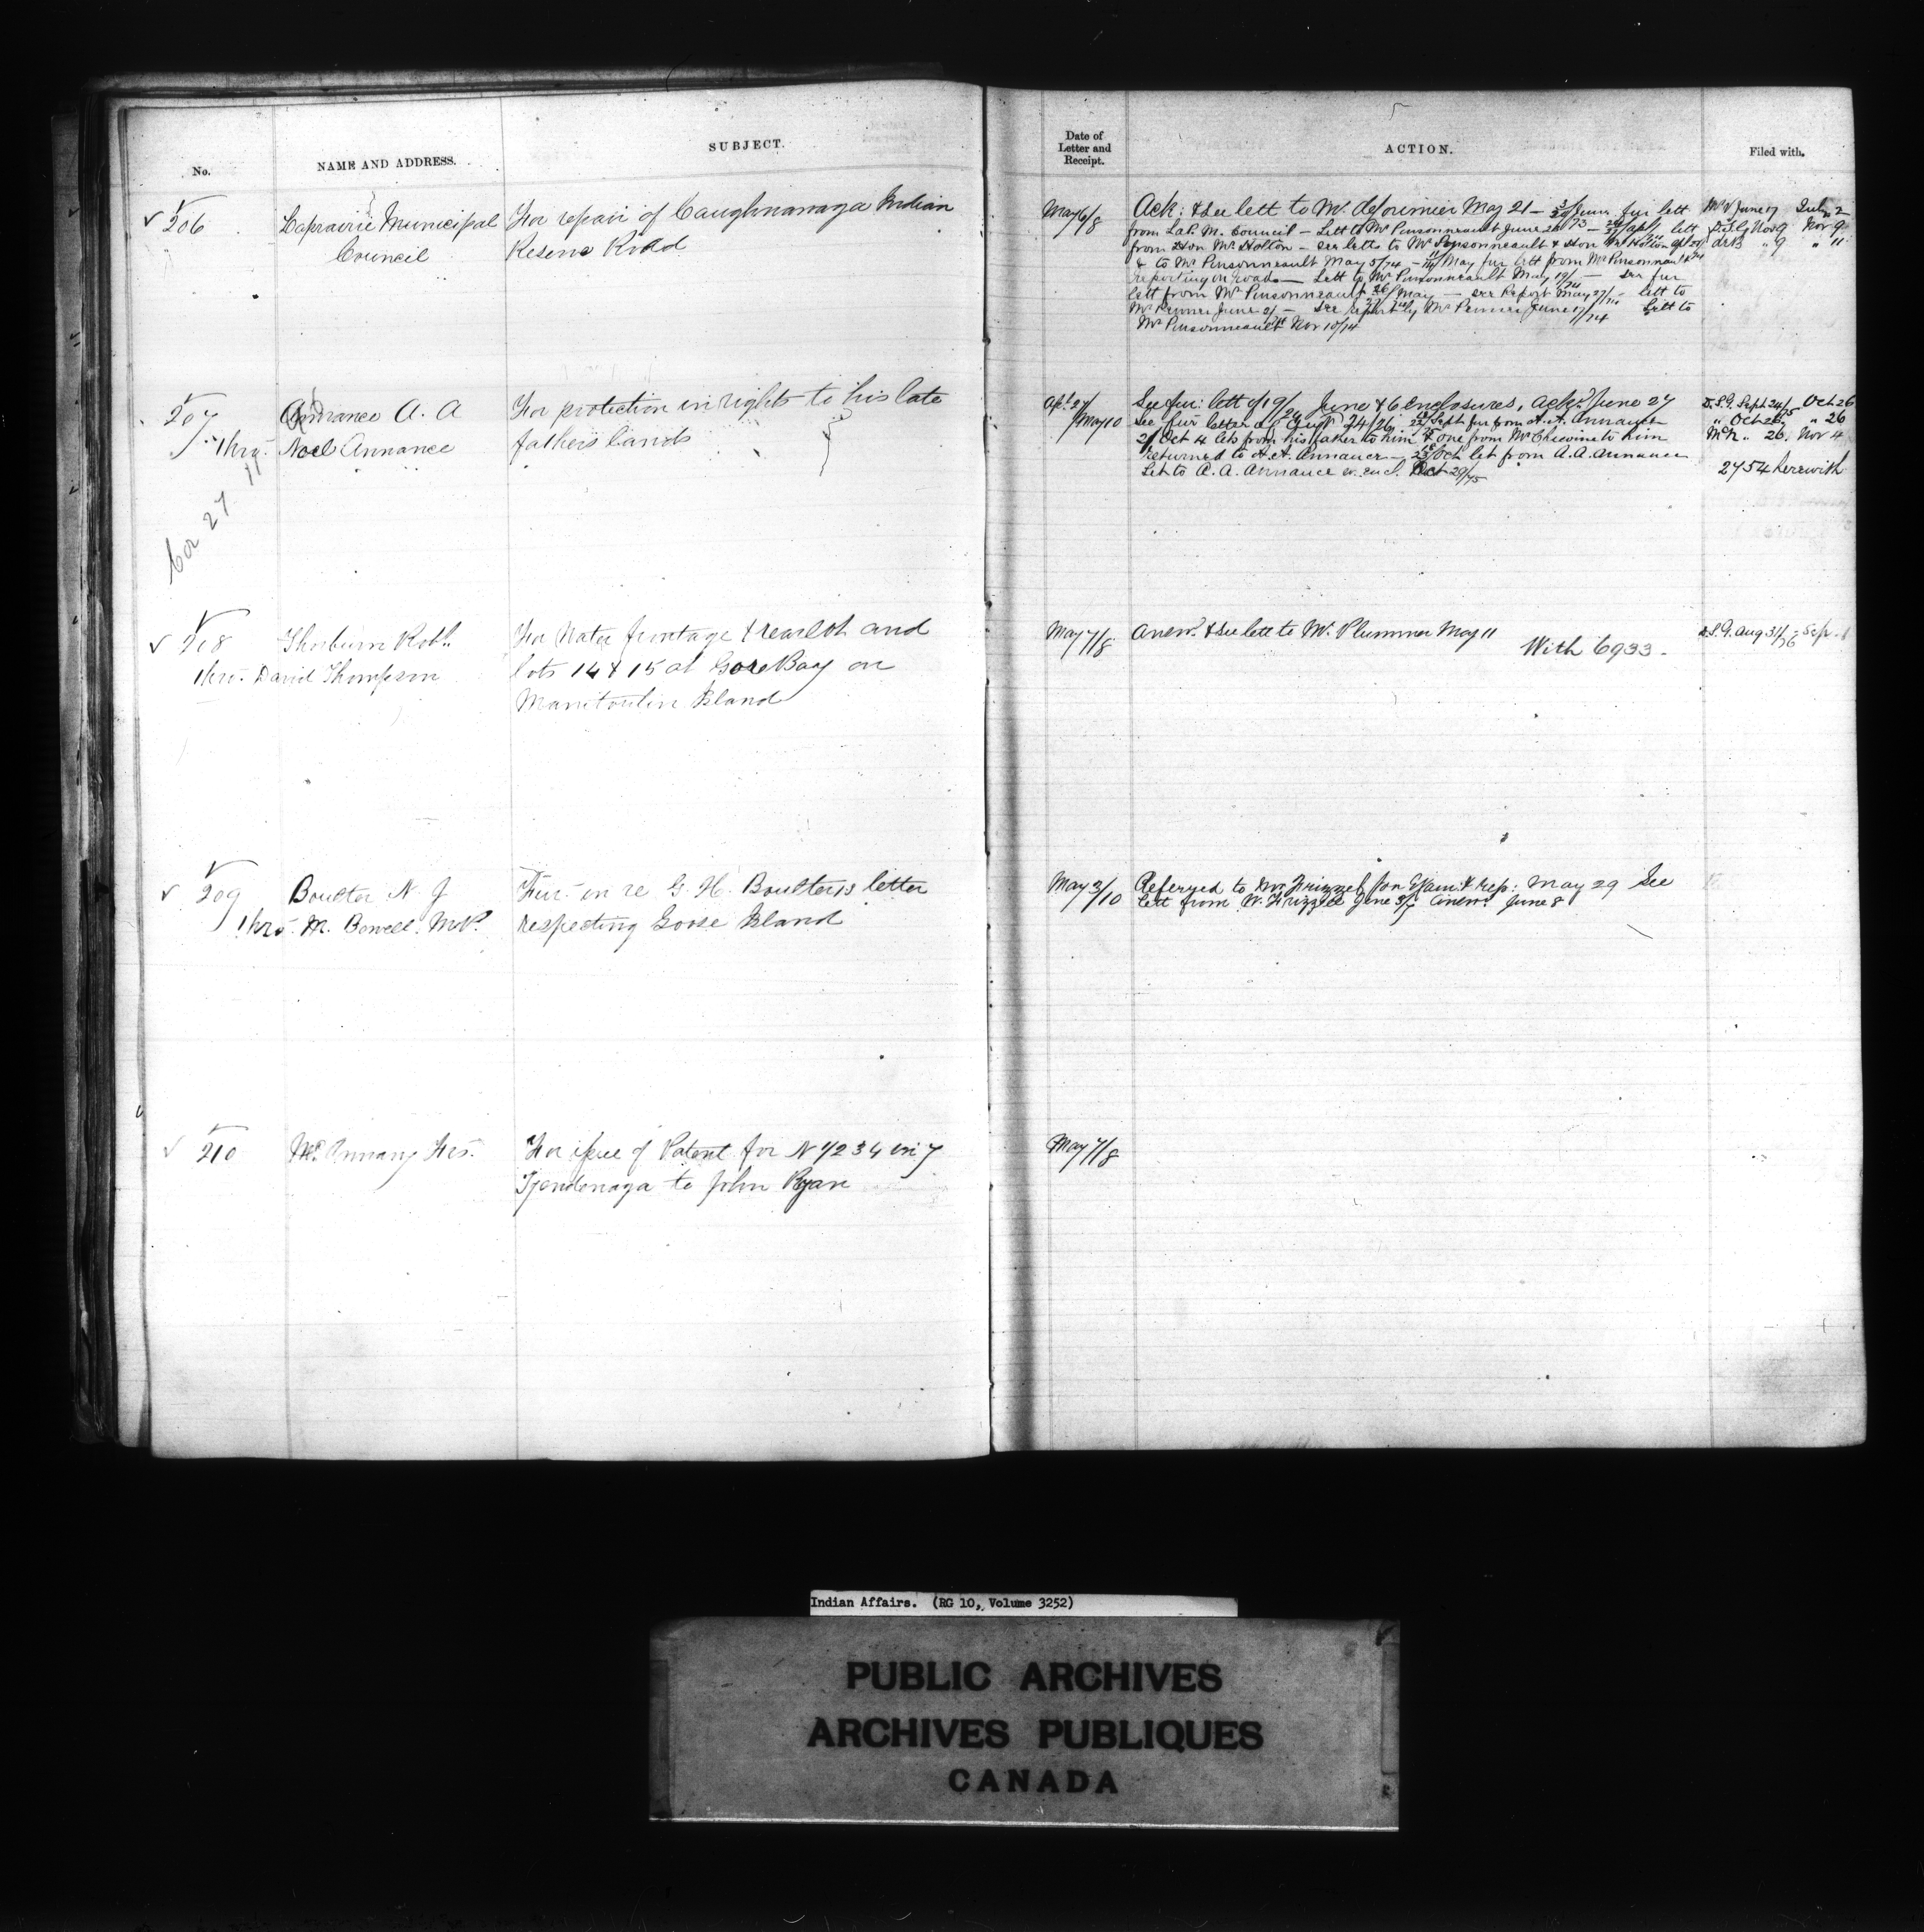 No.
NAME AND ADDRESS.
SUBJECT.
206
Laprairie Municipal
Council
For repair of Caughnawaga Indian
Reserve Road
207
Annance A. A
thro.
Noel Annance
For protection in rights to his late
fathers lands
208
Thorburn Robt.
thro. David Thompson
For Water frontage & rear lot and
lots 14 & 15 at Gore Bay on
Manitoulin Island
209
Boulter N. J
thro. M. Bowell M.P.
Fur. in re G. H. Boulter's letter
respecting Goose Island
210
For issue of Patent for N 1/2 34 in 7
Tyendenaga to John Ryan
Date of
Letter and
Receipt.
ACTION.
Filed with.
May 6/8
Ack: & see lett to Mr. May 21 — June fur lett
from LaP. M. Council — Lett to Mr Pinsonneault June
from Hon Mr Holton — see letts to Mr Pinsonneault & Hon Mr Holton
& to Mr Pinsonneault May 5/74 — May fur lett from Mr Pinsonneault
reporting on road — Lett to Mr Pinsonneault May 19/74 — see fur
lett from Mr Pinsonneault 26/ May — see Report May 27/74 — lett to
June 2/ — see report by Mr June 11/74 Lett to
Mr Pinsonneault Nov 10/74
June 17 July 2
Nov 9 Nov 9
" 9 " 11
Apl 27/
May 10
See fur: lett of 19/24 June & 6 enclosures, ackd. June 27
See fur letter of Augt 24/26 Sept fur from A. A. Annance
2/ Oct 4 lets from his father to him & one from Mr to him
returned to A. A. Annance — Oct let from A. A. Annance
Let to A. A. Annance w. encl. Oct 29/75
D.S.G. Sept 24/75 Oct 26
" Oct 26 " 26
" 26. Nov 4
2754 herewith
May 7/8
Answd. & see lett to Mr. Plummer May 11
With 6933.
D.S.G. Aug 31/76 Sep. 1
May 3/10
Referred to Mr Frizzell for Exam. & rep: May 29 See
lett from W. Frizzell June 3/6 Answd June 8
May 7/8
Indian Affairs. (RG 10, Volume 3252)
PUBLIC ARCHIVES
ARCHIVES PUBLIQUES
CANADA